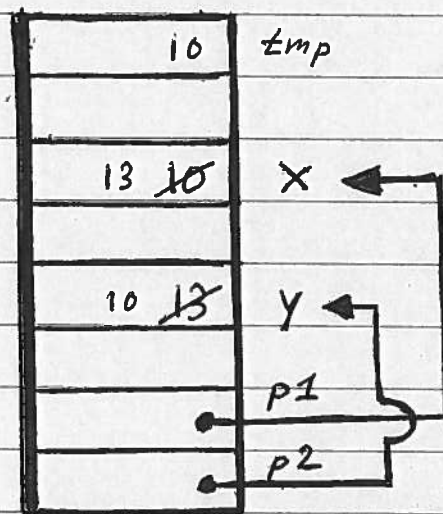 10 tmp
13 10 X
10 13 Y
p1
p2